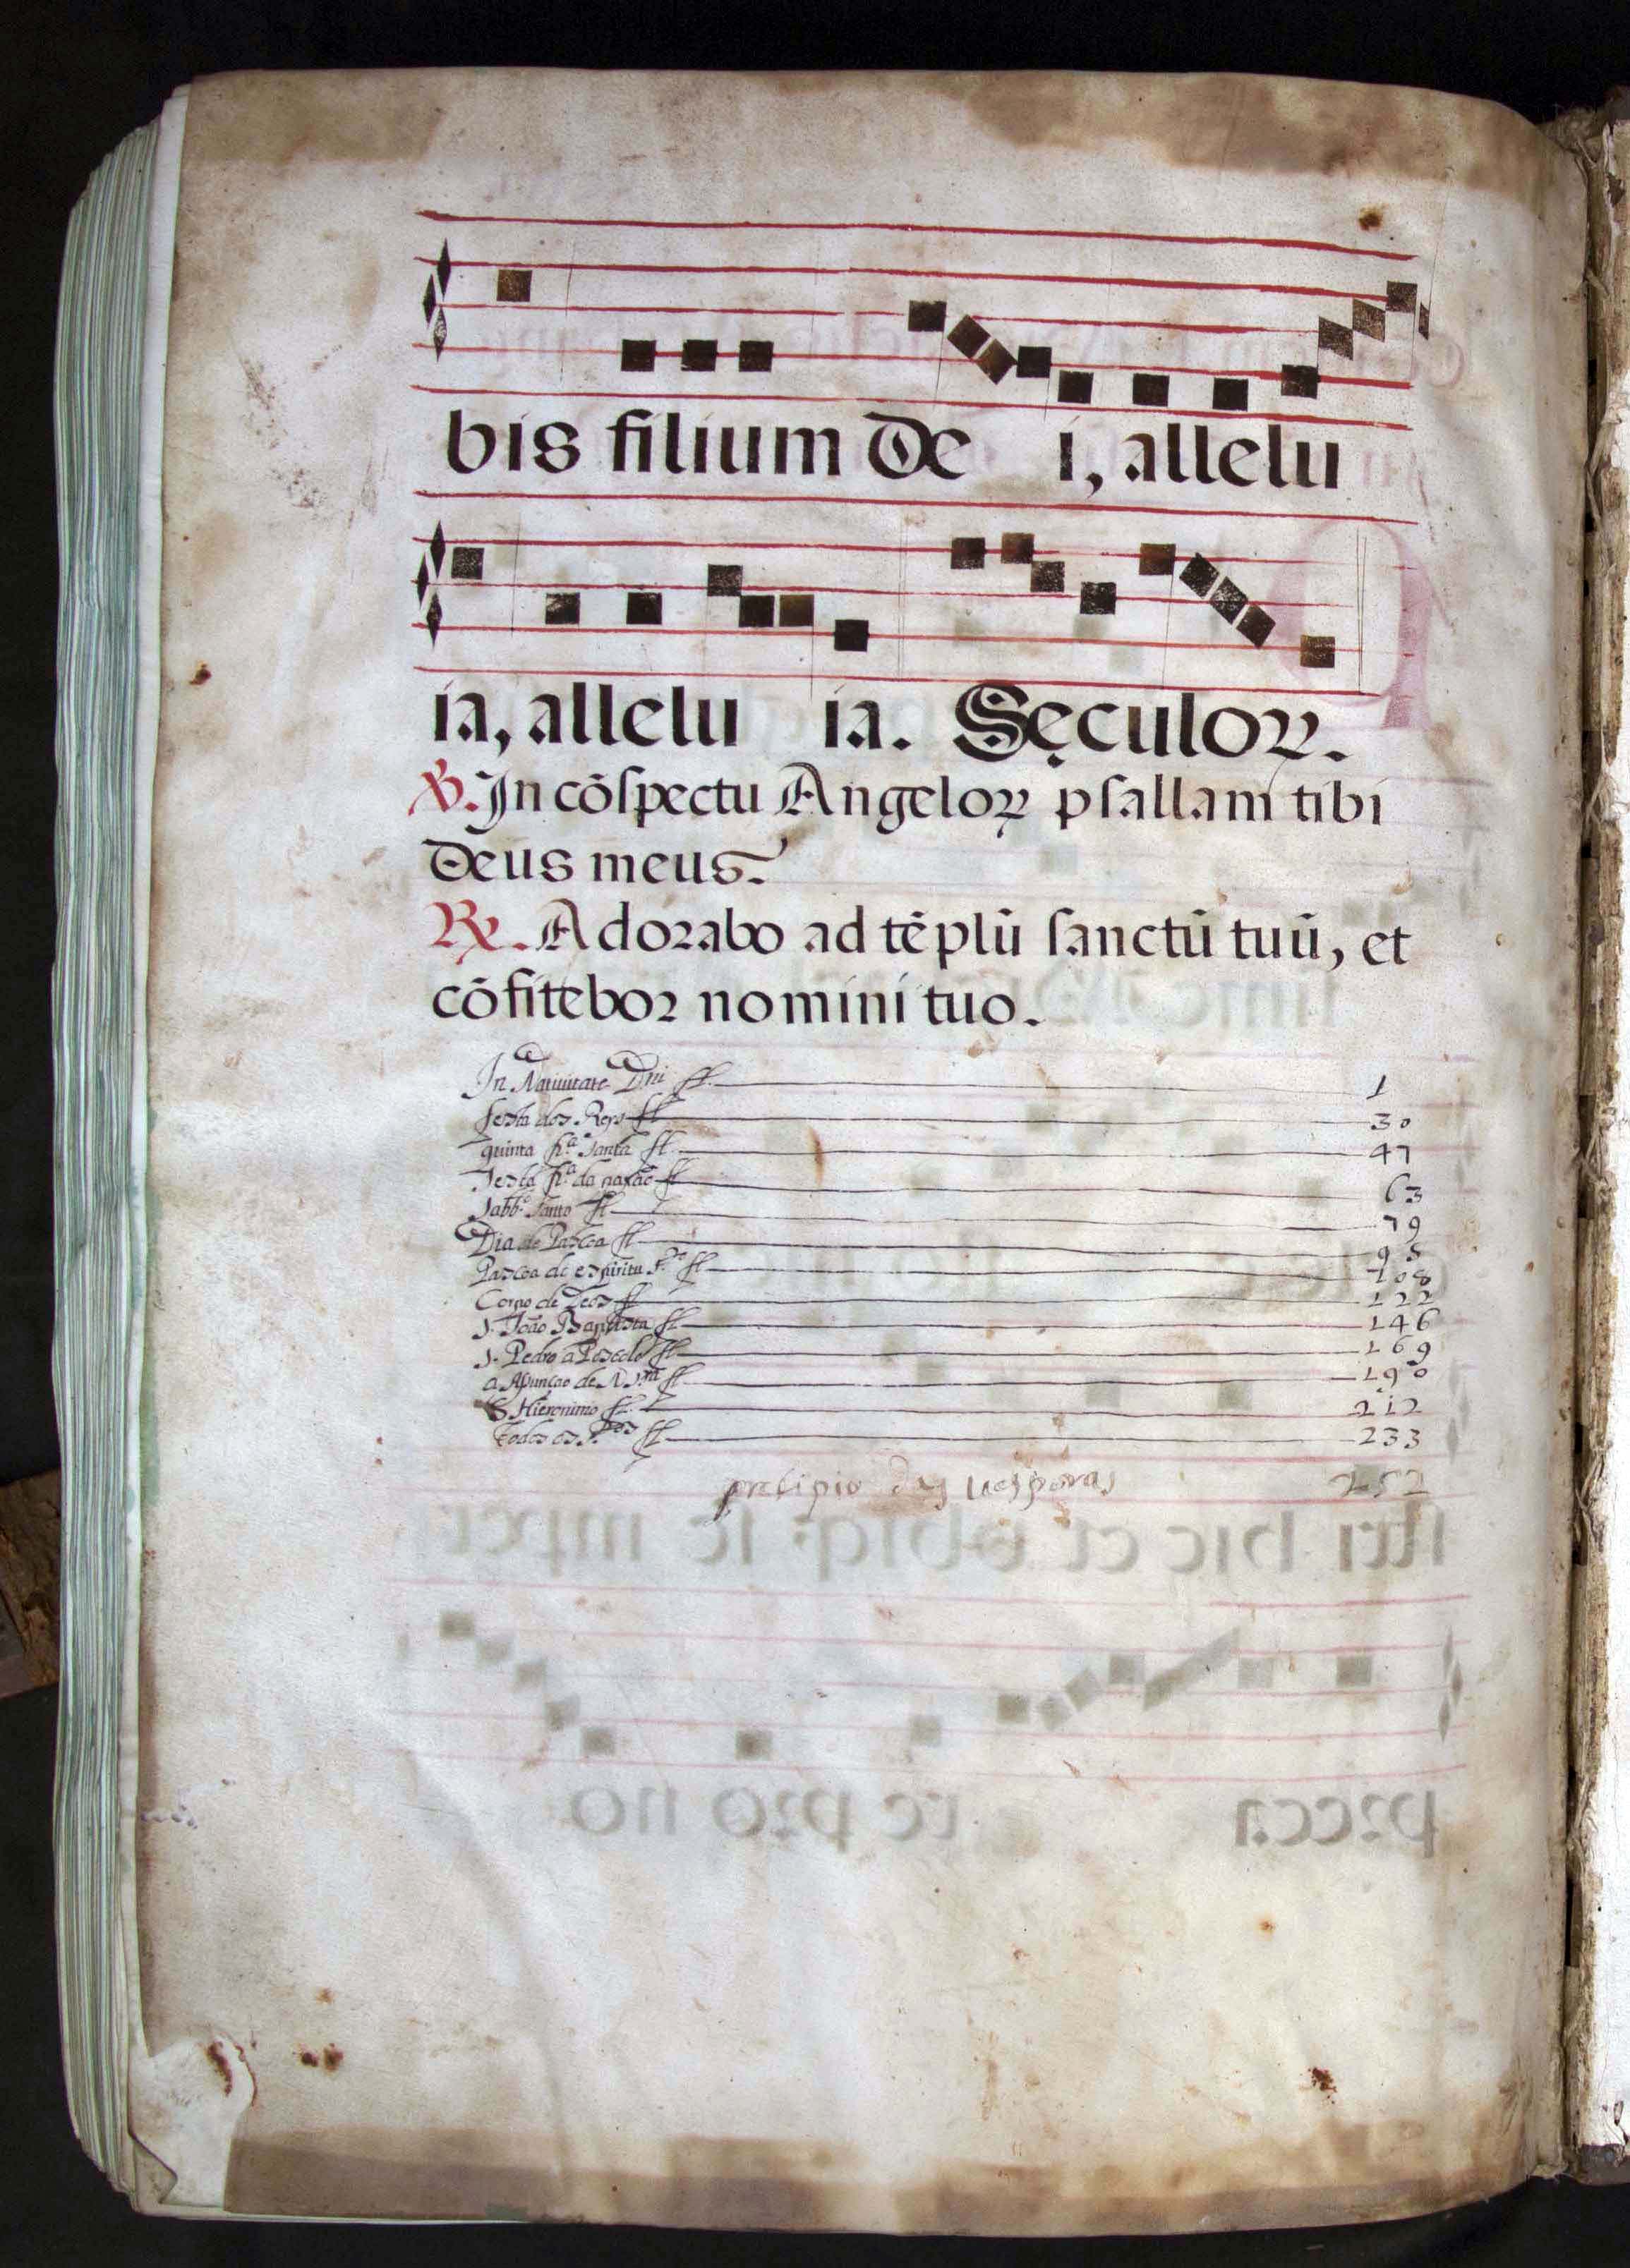 bis filium De i, allelu
ia, allelu ia. Sęculoꝝ.
℣. In cōspectu Angeloꝝ psallam tibi
Deus meus.
℟. Adorabo ad tēplū sanctū tuū, et
cōfitebor nomini tuo.
In Natiuitate Dni fl. 1
festa dos Reys fl. 30
quinta fr.ª santa fl. 47
Sesta fr.ª da paxão fl. 63
Sabb.º Santo fl. 79
Dia de Pascoa fl. 95
Pascoa de espiritu S.to fl. 108
Corpo de Deos fl. 122
S. João Baptista fl. 146
S. Pedro a Paulo fl. 169
a Asumçao de N. Sra fl. 190
S. Hieronimo fl. 212
todos os S.tos fl. 233
presipio das uesporas 252